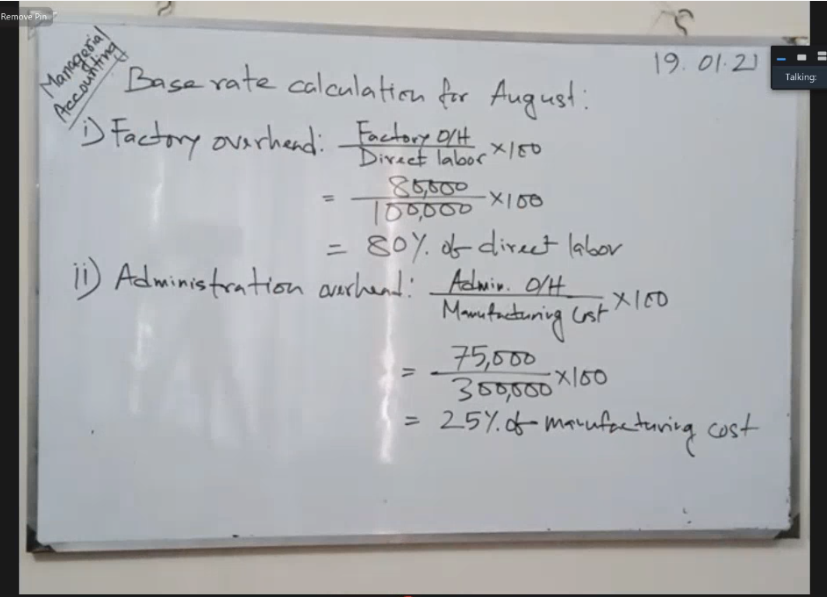 Remove Pin
Managerial
Accounting
19.01.21
Talking:
Base rate calculation for August:
i) Factory overhead: Factory O/H / Direct labor ×100
= 80,000 / 100,000 ×100
= 80% of direct labor
ii) Administration overhead: Admin. O/H / Manufacturing Cost ×100
= 75,000 / 300,000 ×100
= 25% of manufacturing cost